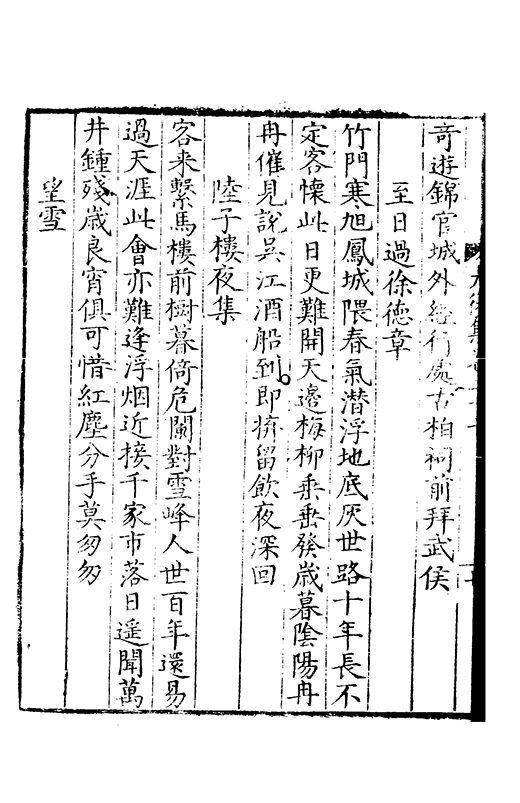 奇遊錦官城外經行處古柏祠前拜武侯
至日過徐德章
竹門寒旭鳳城隈春氣潛浮地底灰世路十年長不
定客懷此日更難開天邊梅柳乘乘發歲暮陰陽冉
冉催見說吳江酒船到即拚留飲夜深回
陸子樓夜集
客来繫馬樓前樹暮倚危闌對雪峰人世百年還易
過天涯此會亦難逢浮烟近接千家市落日遥聞萬
井鍾殘歲良宵俱可惜紅塵分手莫匆匆
望雪